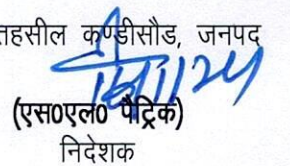 तहसील कण्डीसौड, जनपद
(एस0एल0 पैट्रिक)
निदेशक